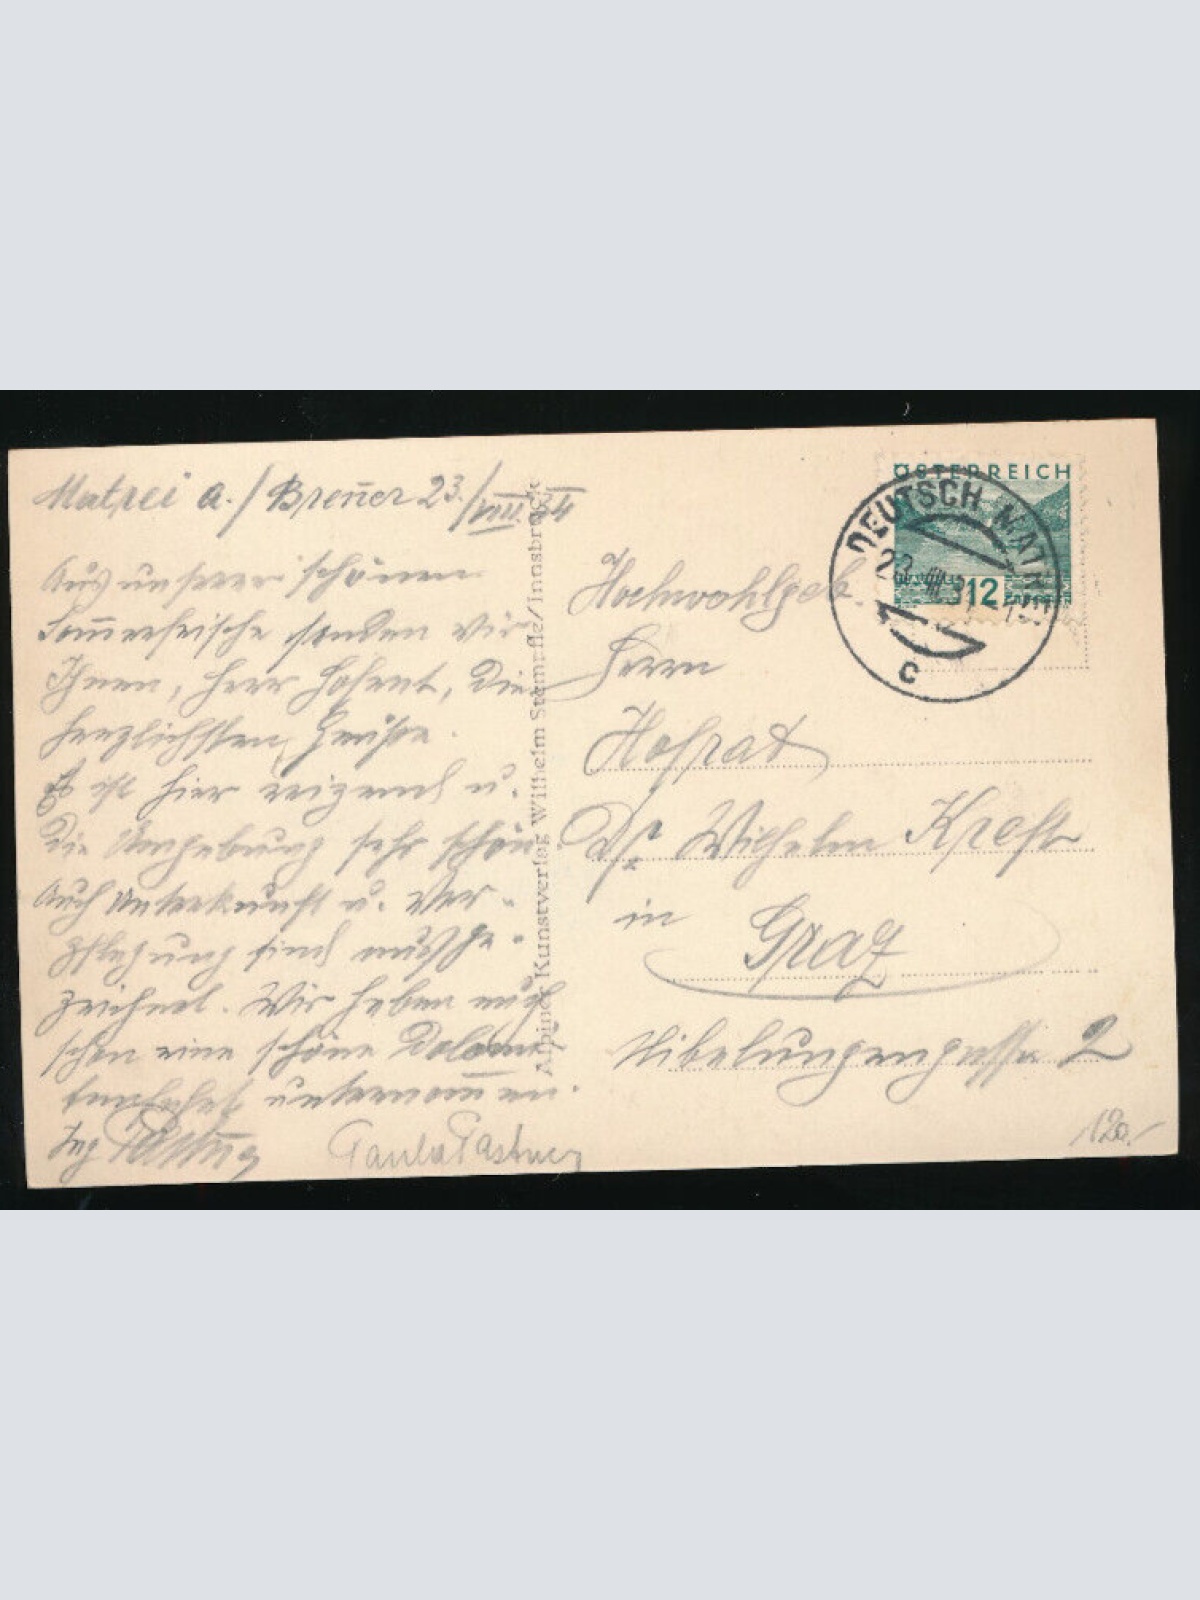 Matrei a./Brenner 23./VIII. 34
Aus unserer schönen
Sommerfrische senden wir
Ihnen, Herr Hofrat, die
herzlichsten Grüße.
Es ist hier reizend u.
die Umgebung sehr schön.
Auch Unterkunft u. Ver-
pflegung sind ausge-
zeichnet. Wir haben auch
schon eine schöne Dolomi-
tenfahrt unternommen.
Ing
Paula
Alpiner Kunstverlag Wilhelm Stempfle/Innsbruck
ÖSTERREICH
12
DEUTSCH-MATR
C
Hochwohlgeb.
Herrn
Hofrat
Dr Wilhelm Kreft
in Graz
Nibelungengasse 2
120.-